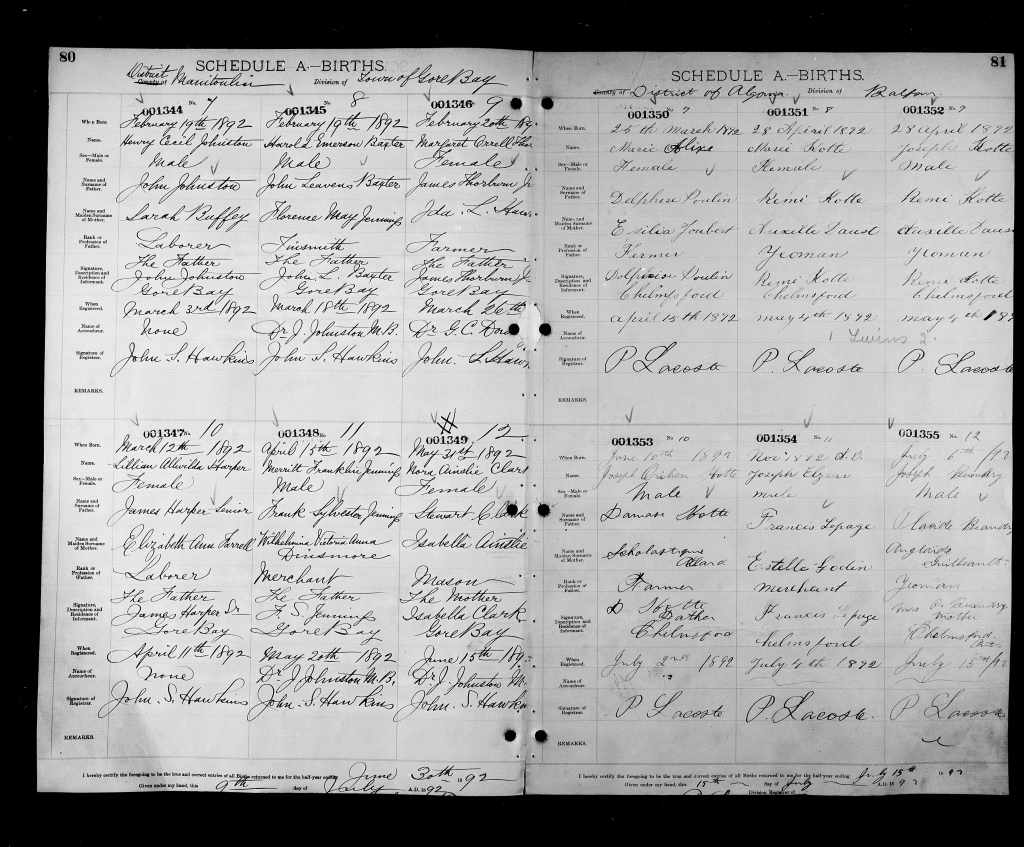 80
SCHEDULE A.—BIRTHS.
District Manitoulin Division of Town of Gore Bay
001344 No. 7 001345 No. 8 001346 9
When Born. February 19th 1892 February 19th 1892 February 20th 189
Name. Henry Cecil Johnston Harold Emerson Baxter Margaret Orrell
Sex—Male or Female. Male Male Female
Name and Surname of Father. John Johnston John Leavens Baxter James Thorburn Jr
Name and Maiden Surname of Mother. Sarah Buffey Florence May Jennings Ida L. Haw
Rank or Profession of Father. Laborer Tinsmith Farmer
Signature, Description and Residence of Informant. The Father The Father The Father
John Johnston John L. Baxter James Thorburn Jr
Gore Bay Gore Bay Gore Bay
When Registered. March 3rd 1892 March 18th 1892 March 26th
Name of Accoucheur. None Dr J. Johnston M.B. Dr G. C.
Signature of Registrar. John S. Hawkins John S. Hawkins John. S Haw
REMARKS.
001347 No. 10 001348 No. 11 001349 12
When Born. March 12th 1892 April 15th 1892 May 31st 1892
Name. Lillian Harper Merritt Franklin Jennings Nora Ainslie Clark
Sex—Male or Female. Female Male Female
Name and Surname of Father. James Harper Senior Frank Sylvester Jennings Stewart Clark
Name and Maiden Surname of Mother. Elizabeth Ann Farrell Wilhelmina Victoria Anna Dinsmore Isabella Ainslie
Rank or Profession of Father. Laborer Merchant Mason
Signature, Description and Residence of Informant. The Father The Father The Mother
James Harper Sr F. S. Jennings Isabella Clark
Gore Bay Gore Bay Gore Bay
When Registered. April 11th 1892 May 20th 1892 June 15th 189
Name of Accoucheur. None Dr J. Johnston M.B. Dr J. Johnston M.
Signature of Registrar. John. S. Hawkins John. S. Hawkins John. S. Hawkin
REMARKS.
I hereby certify the foregoing to be the true and correct entries of all Births returned to me for the half-year ending June 30th 1892
Given under my hand, this 9th day of July A.D. 1892
81
SCHEDULE A.—BIRTHS.
County of District of Algoma Division of Balfour
001350 No. 7 001351 8 001352 9
When Born. 25th March 1892 28 April 1892 28 april 1892
Name. Marie Alixe Marie Kotte Joseph Kotte
Sex—Male or Female. Female Female Male
Name and Surname of Father. Delphise Poulin Remi Kotte Remi Kotte
Name and Maiden Surname of Mother. Esilia Joubert Auxille
Rank or Profession of Father. Farmer Yeoman Yeoman
Signature, Description and Residence of Informant. Poulin Remi Kotte Remi Kotte
Chelmsford Chelmsford Chelmsford
When Registered. april 15th 1892 may 4th 1892 may 4th 189
Name of Accoucheur. 1 Twins 2.
Signature of Registrar. P Lacoste P. Lacoste P Lacoste
REMARKS.
001353 No. 10 001354 11 001355 No. 12
When Born. June 10th 1892 Nov 1892 A.D. July 6th /92
Name. Joseph Joseph Joseph Beaudry
Sex—Male or Female. Male male Male
Name and Surname of Father. Damase Francis Lepage Beaudry
Name and Maiden Surname of Mother. Scholastique Allard Estelle Godin
Rank or Profession of Father. Farmer merchant Yeoman
Signature, Description and Residence of Informant. D Father Francis Lepage mother
Chelmsfor helmsford Chelmsford
When Registered. July 2nd 1892 July 4th 1892 July 15th /92
Name of Accoucheur.
Signature of Registrar. P Lacoste P. Lacoste. P Lacoste
REMARKS.
I hereby certify the foregoing to be the true and correct entries of all Births returned to me for the half-year ending July 15th 1892
Given under my hand, this 15th day of July A.D. 189
Division Registrar of